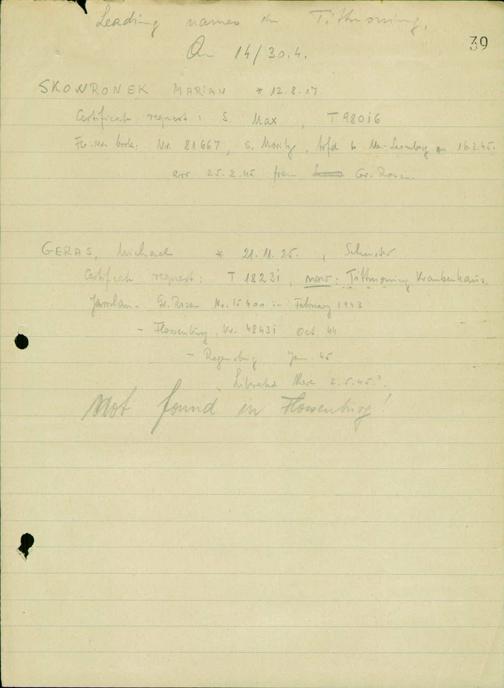 39
Leading names in Tittmoning.
On 14/30.4.
SKOWRONEK MARIAN * 12.8.17
Certificate request: S. Max, T 98016
Nr. 81667, S. Moritz, to 16.2.45.
arr. 25.2.45 from Gr. Rosen
GERAS, Michael * 21.11.25.,
Certificate request: T 18221, now: Tittmoning Krankenhaus,
Jaroslau - Gr. Rosen Nr. 15400 in February 1943
- Flossenbürg, Nr. 48431 Oct. 44
- Regensburg Jan. 45
Liberated there 2.5.45.
Not found in Flossenburg!